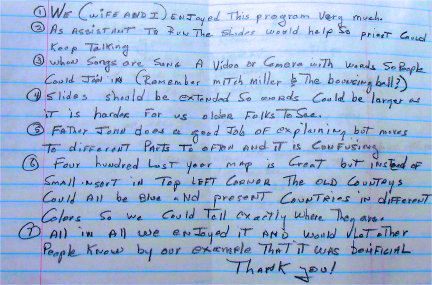 ① WE (WIFE AND I) ENJOYED This program Very much.
② AS ASSISTANT TO RUN The Slides would help So priest Could
Keep Talking
③ when Songs are Sung A Video or Camera with words So People
Could Join in (Remember mitch miller & The bouncing ball?)
④ Slides should be extended So words Could be larger as
iT is harder For us older Folks To See.
⑤ FATHER John does a good Job of explaining but moves
To different Parts To often AND iT is CONFUSING
⑥ Four hundred Lost year map is Great but instead of
Small insert in Top LEFT CORNER The OLD Countrys
Could All be Blue and present Countries in different
Colors So we Could Tell Exactly where They are.
⑦ All in All we enJoyed iT AND would let other
People Know by our example That iT was benificial
Thank you!